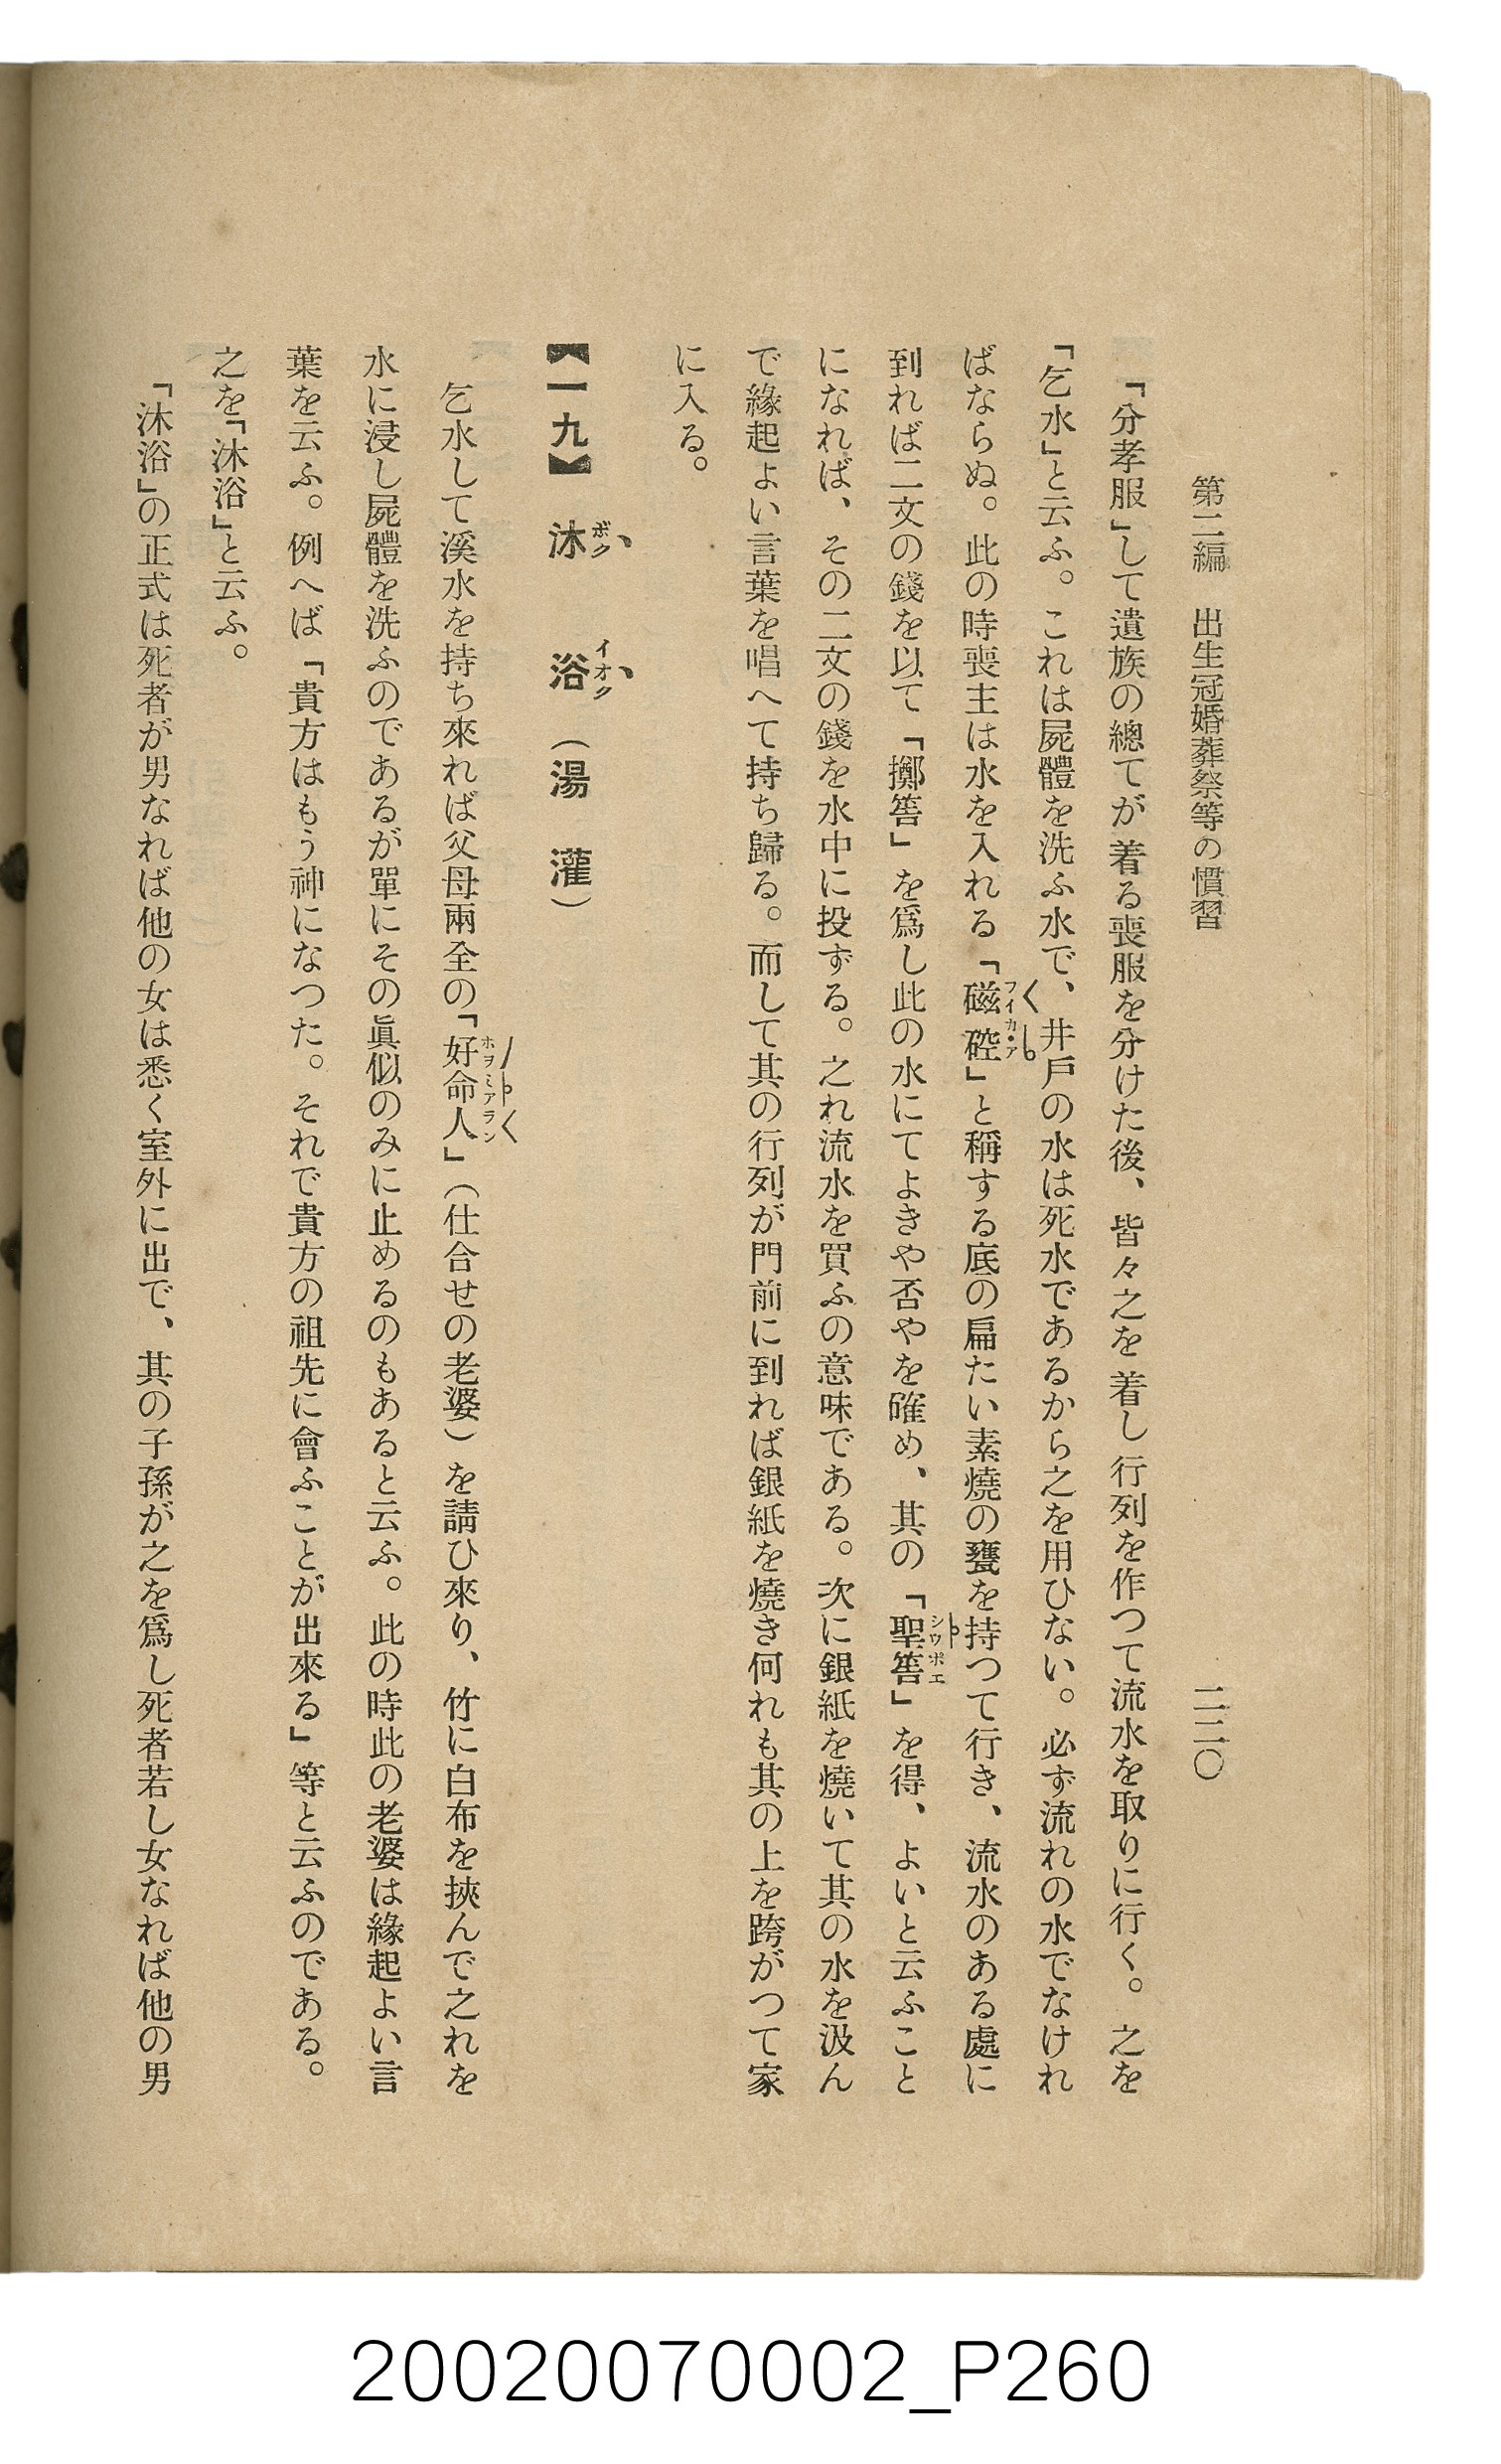 第二編　出生冠婚葬祭等の慣習　二二〇
「分孝服」して遺族の總てが着る喪服を分けた後、皆々之を着し行列を作つて流水を取りに行く。之を
「乞水」と云ふ。これは屍體を洗ふ水で、井戸の水は死水であるから之を用ひない。必ず流れの水でなけれ
ばならぬ。此の時喪主は水を入れる「磁硿」と稱する底の扁たい素燒の甕を持つて行き、流水のある處に
到れば二文の錢を以て「擲筶」を爲し此の水にてよきや否やを確め、其の「聖筶」を得、よいと云ふこと
になれば、その二文の錢を水中に投ずる。之れ流水を買ふの意味である。次に銀紙を燒いて其の水を汲ん
で緣起よい言葉を唱へて持ち歸る。而して其の行列が門前に到れば銀紙を燒き何れも其の上を跨がつて家
に入る。
【一九】　沐　浴（湯　灌）
乞水して溪水を持ち來れば父母兩全の「好命人」（仕合せの老婆）を請ひ來り、竹に白布を挾んで之れを
水に浸し屍體を洗ふのであるが單にその眞似のみに止めるのもあると云ふ。此の時此の老婆は緣起よい言
葉を云ふ。例へば「貴方はもう神になつた。それで貴方の祖先に會ふことが出來る」等と云ふのである。
之を「沐浴」と云ふ。
「沐浴」の正式は死者が男なれば他の女は悉く室外に出で、其の子孫が之を爲し死者若し女なれば他の男
20020070002_P260